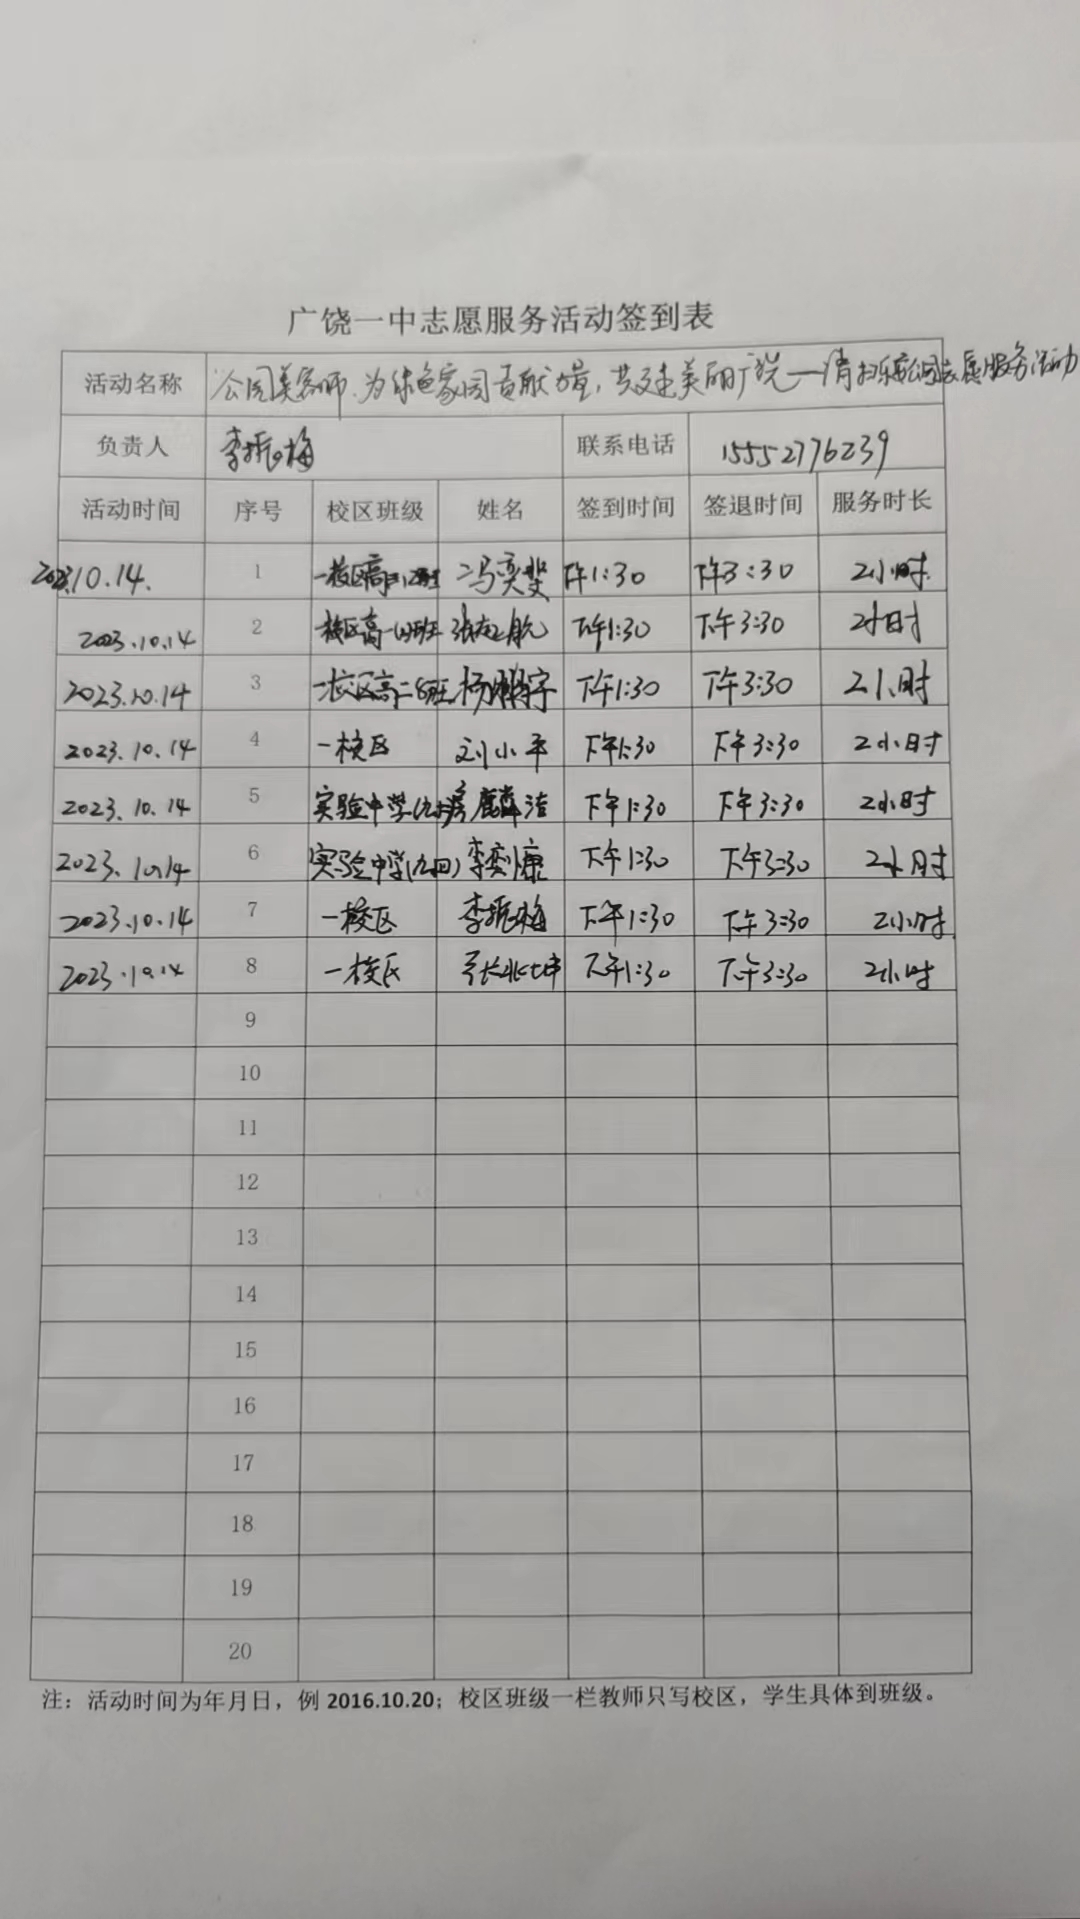 广饶一中志愿服务活动签到表
活动名称 公园美容师,为绿色家园贡献力量,共建美丽广饶——清扫乐安公园志愿服务活动
负责人 李振梅 联系电话 15552776239
活动时间 序号 校区班级 姓名 签到时间 签退时间 服务时长
2023.10.14. 1 一校区高 冯奕斐 下午1:30 下午3:30 2小时
2023.10.14 2 校区高一 班 下午1:30 下午3:30 2小时
2023.10.14 3 一校区高二8班 杨 宇 下午1:30 下午3:30 2小时
2023.10.14 4 一校区 刘小平 下午1:30 下午3:30 2小时
2023.10.14 5 实验中学 麟洁 下午1:30 下午3:30 2小时
2023.10.14 6 实验中学(九四) 李奕慷 下午1:30 下午3:30 2小时
2023.10.14 7 一校区 李振梅 下午1:30 下午3:30 2小时
2023.10.14 8 一校区 下午1:30 下午3:30 2小时
9
10
11
12
13
14
15
16
17
18
19
20
注:活动时间为年月日,例 2016.10.20;校区班级一栏教师只写校区,学生具体到班级。